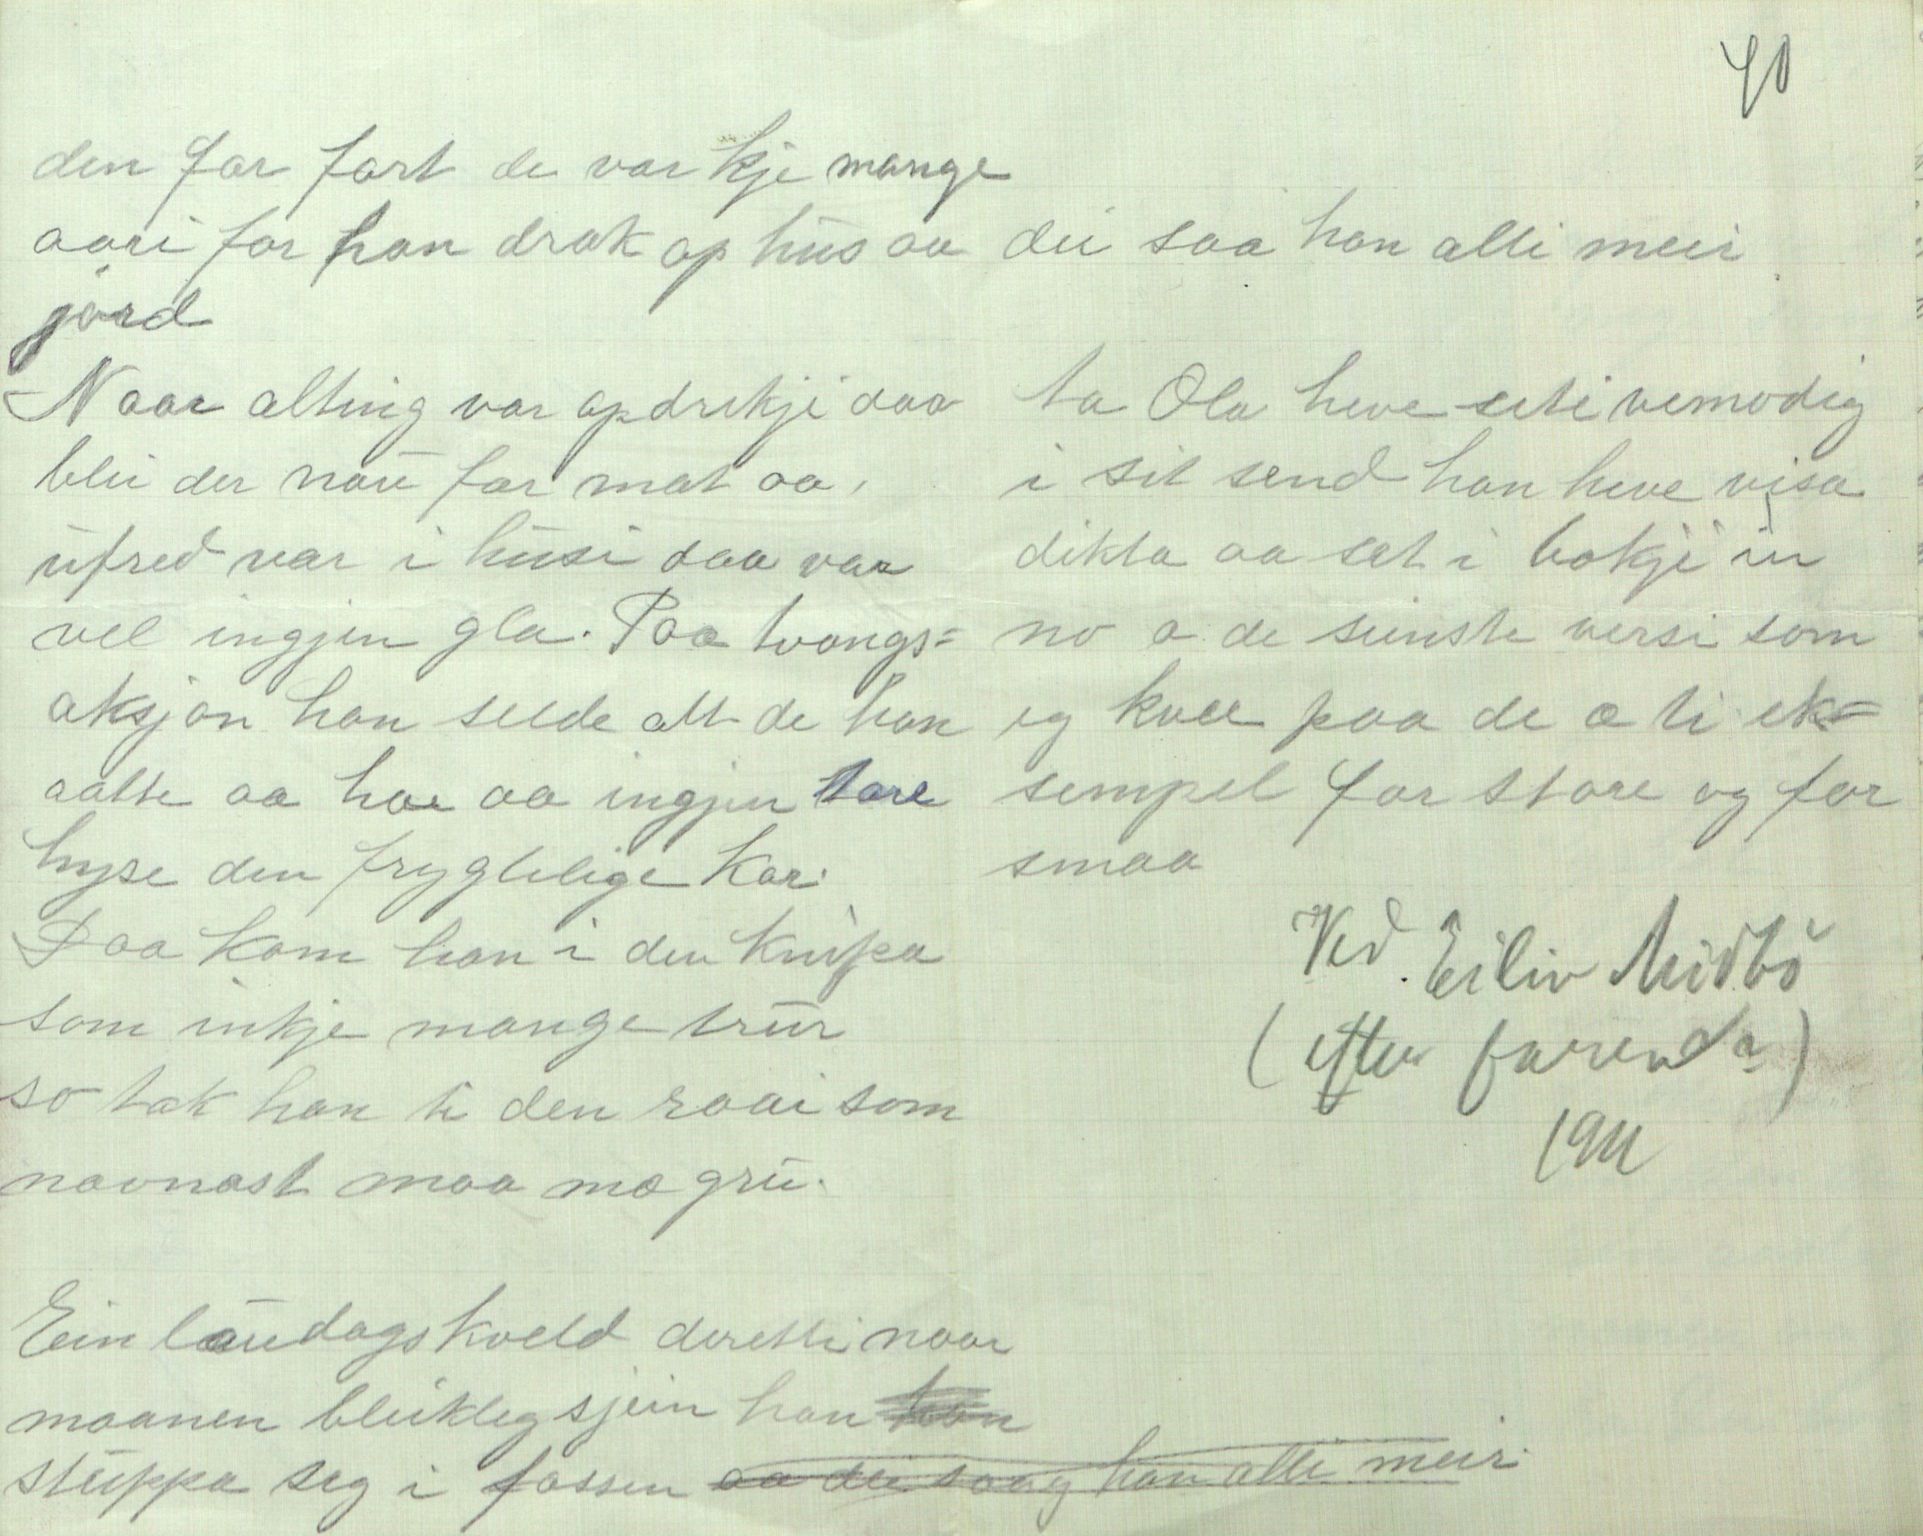 40
den for fort de var kje mange
aari for han drak op hus aa
jord
Naar alting var opdrikje daa
blei der nau for mat aa
ufred var i husi daa var
vel ingjen gla. Paa tvongs=
aksjon han selde alt de han
aatte aa hae aa ingjen tore
hyse den frygtelige Kar.
Daa kom han i den knipa
som inkje mange trur
so tok han ti den raai som
navnast maa mæ gru.
Ein laudagskveld deretti naar
maanen bleikleg sjein han
stuppa seg i fossen aa dei saag han alli meir
dei saa han alli meir
ta Ola heve seti vemodig
i sit send han heve visa
dikta aa set i bokji in
no æ de seinste versi som
eg kvee paa de æ ti ek=
sempel for store og for
smaa
Ved Eiliv Midbö
(efter farenda)
1911